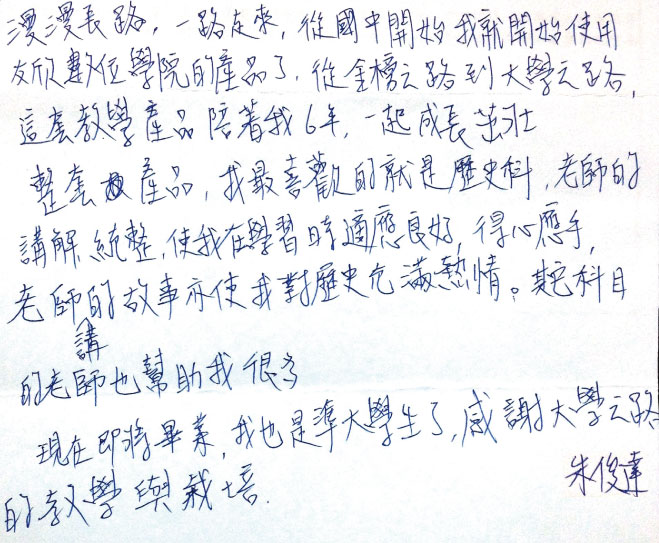 漫漫長路，一路走來，從國中開始我就開始使用
友欣數位學院的產品了，從金榜之路到大學之路，
這套教學產品陪著我6年，一起成長茁壯
整套產品，我最喜歡的就是歷史科，老師的
講解統整，使我在學習時適應良好，得心應手，
老師講的故事亦使我對歷史充滿熱情。其它科目
的老師也幫助我很多
現在即將畢業，我也是準大學生了，感謝大學之路
的教學與栽培.
朱俊達